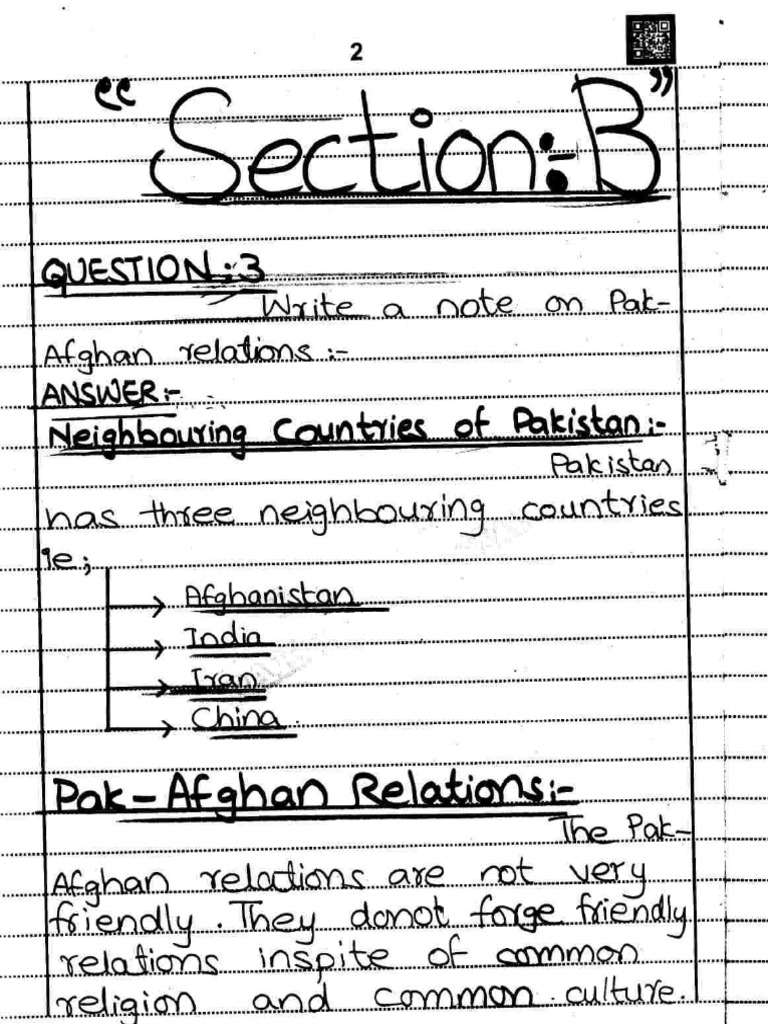 2
“Section:-B”
QUESTION:3
Write a note on Pak-
Afghan relations:-
ANSWER:-
Neighbouring Countries of Pakistan:-
Pakistan
has three neighbouring countries
ie;
Afghanistan
India
Iran
China.
Pak-Afghan Relations:-
The Pak-
Afghan relations are not very
friendly. They donot forge friendly
relations inspite of common
religion and common culture.